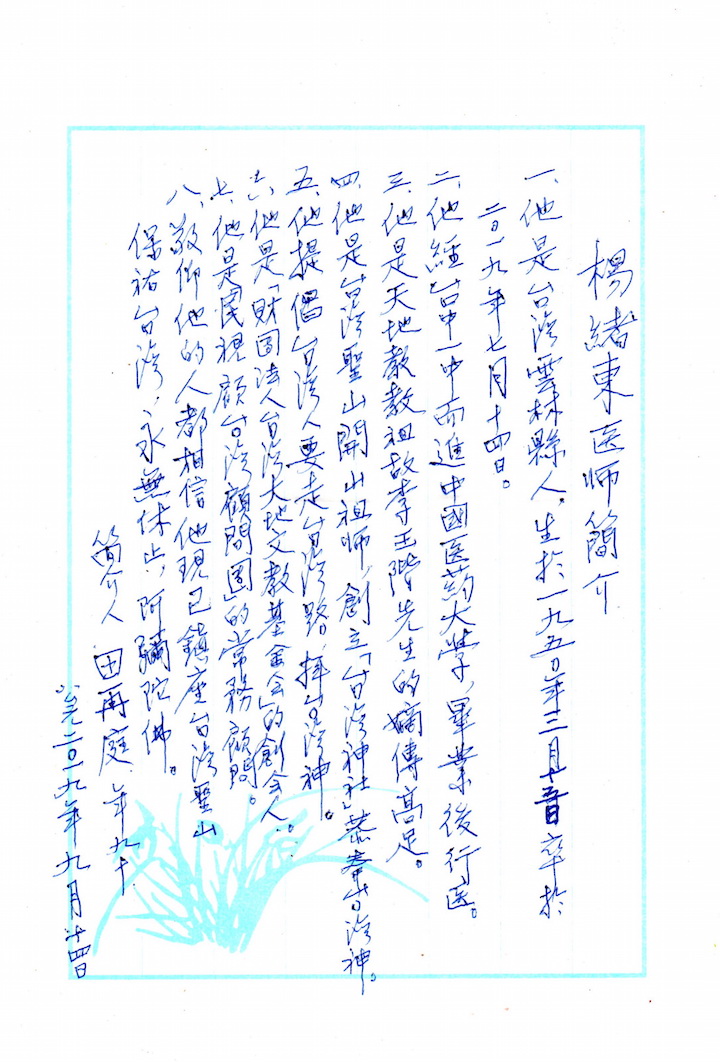 楊緒東医师簡介
一、他是台湾雲林縣人。生於一九五〇年三月十五日卒於
二〇一九年七月十四日。
二、他經台中一中而進中國医药大學，畢業後行医。
三、他是天地教教祖故李玉階先生的嫡傳高足。
四、他是台湾聖山開山祖师，創立「台湾神社」恭奉台湾神。
五、他提倡台湾人要走台湾路，拜台湾神。
六、他是「財团法人台湾大地文教基金会」的創会人。
七、他是民視「顧台湾顧問团」的常務顧問。
八、敬仰他的人都相信他現已鎮座台湾聖山
保祐台湾，永無休止，阿彌陀佛。
簡介人 田再庭 年九十
公元二〇一九年九月十四日